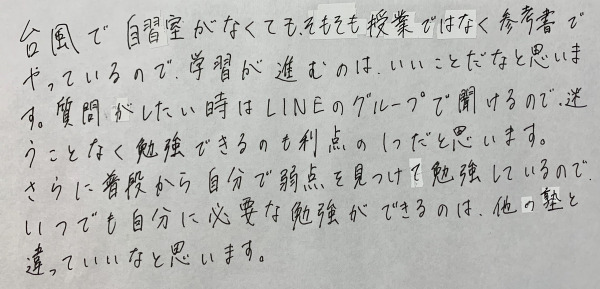 台風で自習室がなくても、そもそも授業ではなく参考書で
やっているので、学習が進むのは、いいことだなと思いま
す。質問がしたい時はLINEのグループで聞けるので、迷
うことなく勉強できるのも利点の1つだと思います。
さらに普段から自分で弱点を見つけて勉強しているので、
いつでも自分に必要な勉強ができるのは、他の塾と
違っていいなと思います。